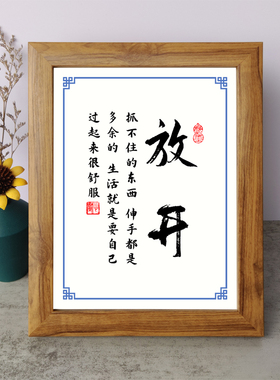 放开
抓不住的东西 伸手都是
多余的 生活就是要自己
过起来很舒服